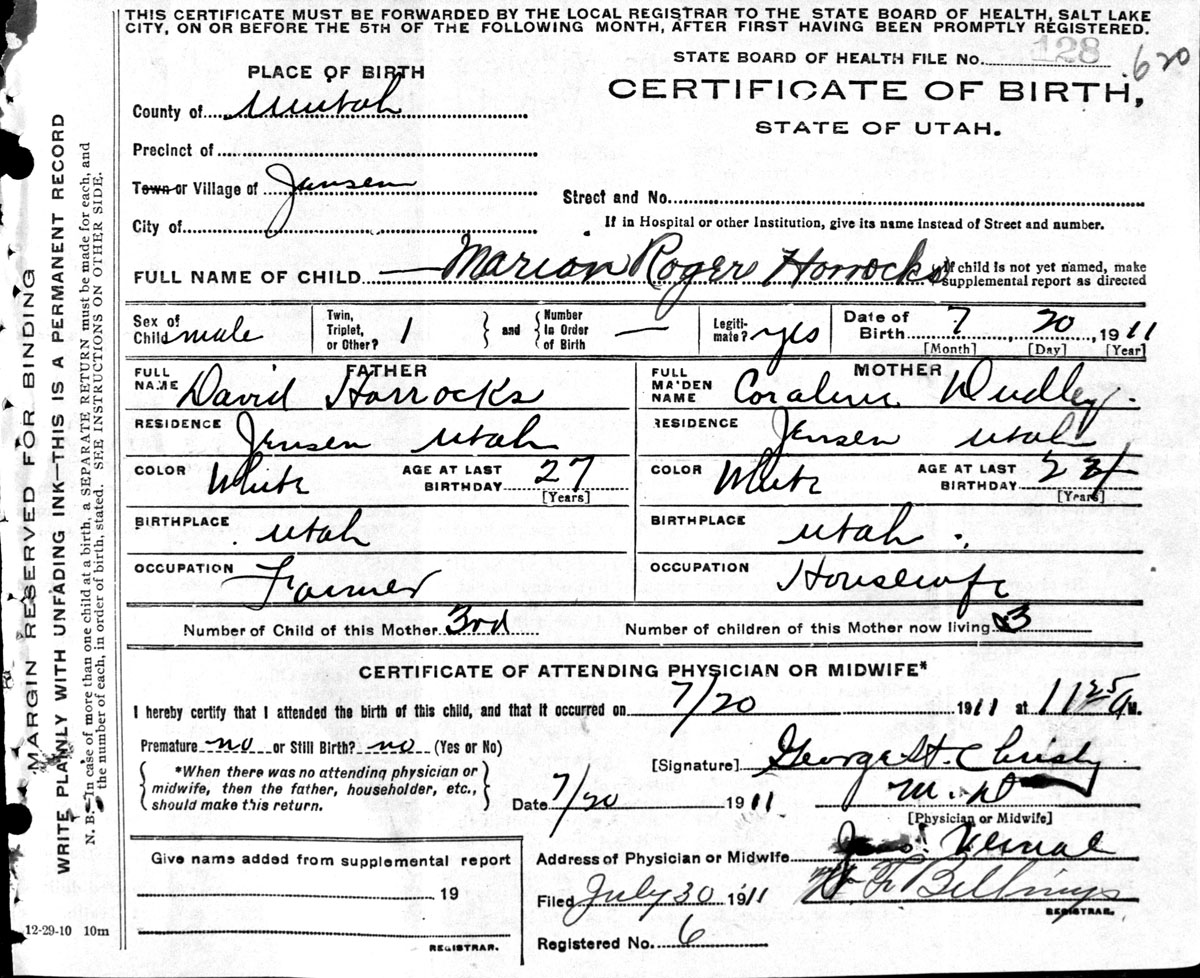 THIS CERTIFICATE MUST BE FORWARDED BY THE LOCAL REGISTRAR TO THE STATE BOARD OF HEALTH, SALT LAKE
CITY, ON OR BEFORE THE 5TH OF THE FOLLOWING MONTH, AFTER FIRST HAVING BEEN PROMPTLY REGISTERED.
STATE BOARD OF HEALTH FILE No. 128 620
PLACE OF BIRTH
CERTIFICATE OF BIRTH,
STATE OF UTAH.
County of Uintah
Precinct of
Town or Village of Jensen
Street and No.
City of
If in Hospital or other Institution, give its name instead of Street and number.
FULL NAME OF CHILD Marion Roger Horrocks
If child is not yet named, make
supplemental report as directed
Sex of Child male Twin, Triplet, or Other? 1 and Number In Order of Birth — Legiti-mate? yes Date of Birth 7 20, 1911
[Month] [Day] [Year]
FATHER MOTHER
FULL NAME David Horrocks FULL MAIDEN NAME Coraline Dudley.
RESIDENCE Jensen Utah RESIDENCE Jensen Utah
COLOR White AGE AT LAST BIRTHDAY 27 [Years] COLOR White AGE AT LAST BIRTHDAY [Years]
BIRTHPLACE Utah BIRTHPLACE Utah.
OCCUPATION Farmer OCCUPATION Housewife
Number of Child of this Mother 3rd Number of children of this Mother now living 3
CERTIFICATE OF ATTENDING PHYSICIAN OR MIDWIFE*
I hereby certify that I attended the birth of this child, and that it occurred on 7/20 1911 at 11 25 a M.
Premature no or Still Birth? no (Yes or No)
*When there was no attending physician or
midwife, then the father, householder, etc.,
should make this return.
[Signature] George H. Christy
Date 7/20 1911 M.D.
[Physician or Midwife]
Give name added from supplemental report
19
REGISTRAR.
Address of Physician or Midwife Vernal
Filed July 30 1911 Billings
REGISTRAR.
Registered No. 6
12-29-10 10m
MARGIN RESERVED FOR BINDING
WRITE PLAINLY WITH UNFADING INK—THIS IS A PERMANENT RECORD
N. B.—In case of more than one child at a birth, a SEPARATE RETURN must be made for each, and
the number of each, in order of birth, stated. SEE INSTRUCTIONS ON OTHER SIDE.